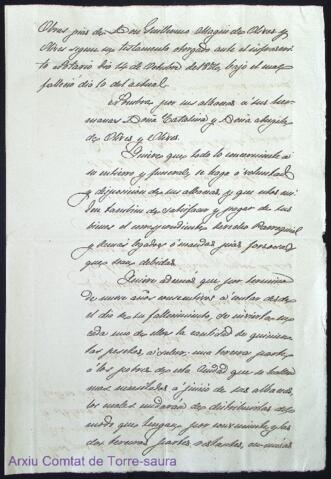 Obras pías de Don Guillermo Magín de Olives y
Olives segun su testamento otorgado ante el infrascrito
Notario dia 14 de Octubre de 1876, bajo el cual
falleció dia 10 del actual.
Nombra por sus albaceas á sus her-
manas Doña Catalina y Doña Magda-
de Olives y Olives.
Quiere que todo lo concerniente á
su entierro y funeral, se haga á voluntad
y disposicion de sus albaceas, y que estos cui-
den tambien de satisfacer y pagar de sus
bienes el correspondiente derecho Parroquial
y demás legados ó mandas pías forzosas
que sean debidas.
Quiere además que por termino
de nueve años consecutivos á contar desde
el dia de su fallecimiento, se inviertan en
cada uno de ellos la cantidad de quinien-
tas pesetas á saber: una tercera parte
á los pobres de esta Ciudad que se hallen
mas necesitados á juicio de sus albaceas,
los cuales cuidarán de distribuirlas del
modo que tengan por conveniente; y las
dos terceras partes restantes, en misas
Arxiu Comtat de Torre-saura